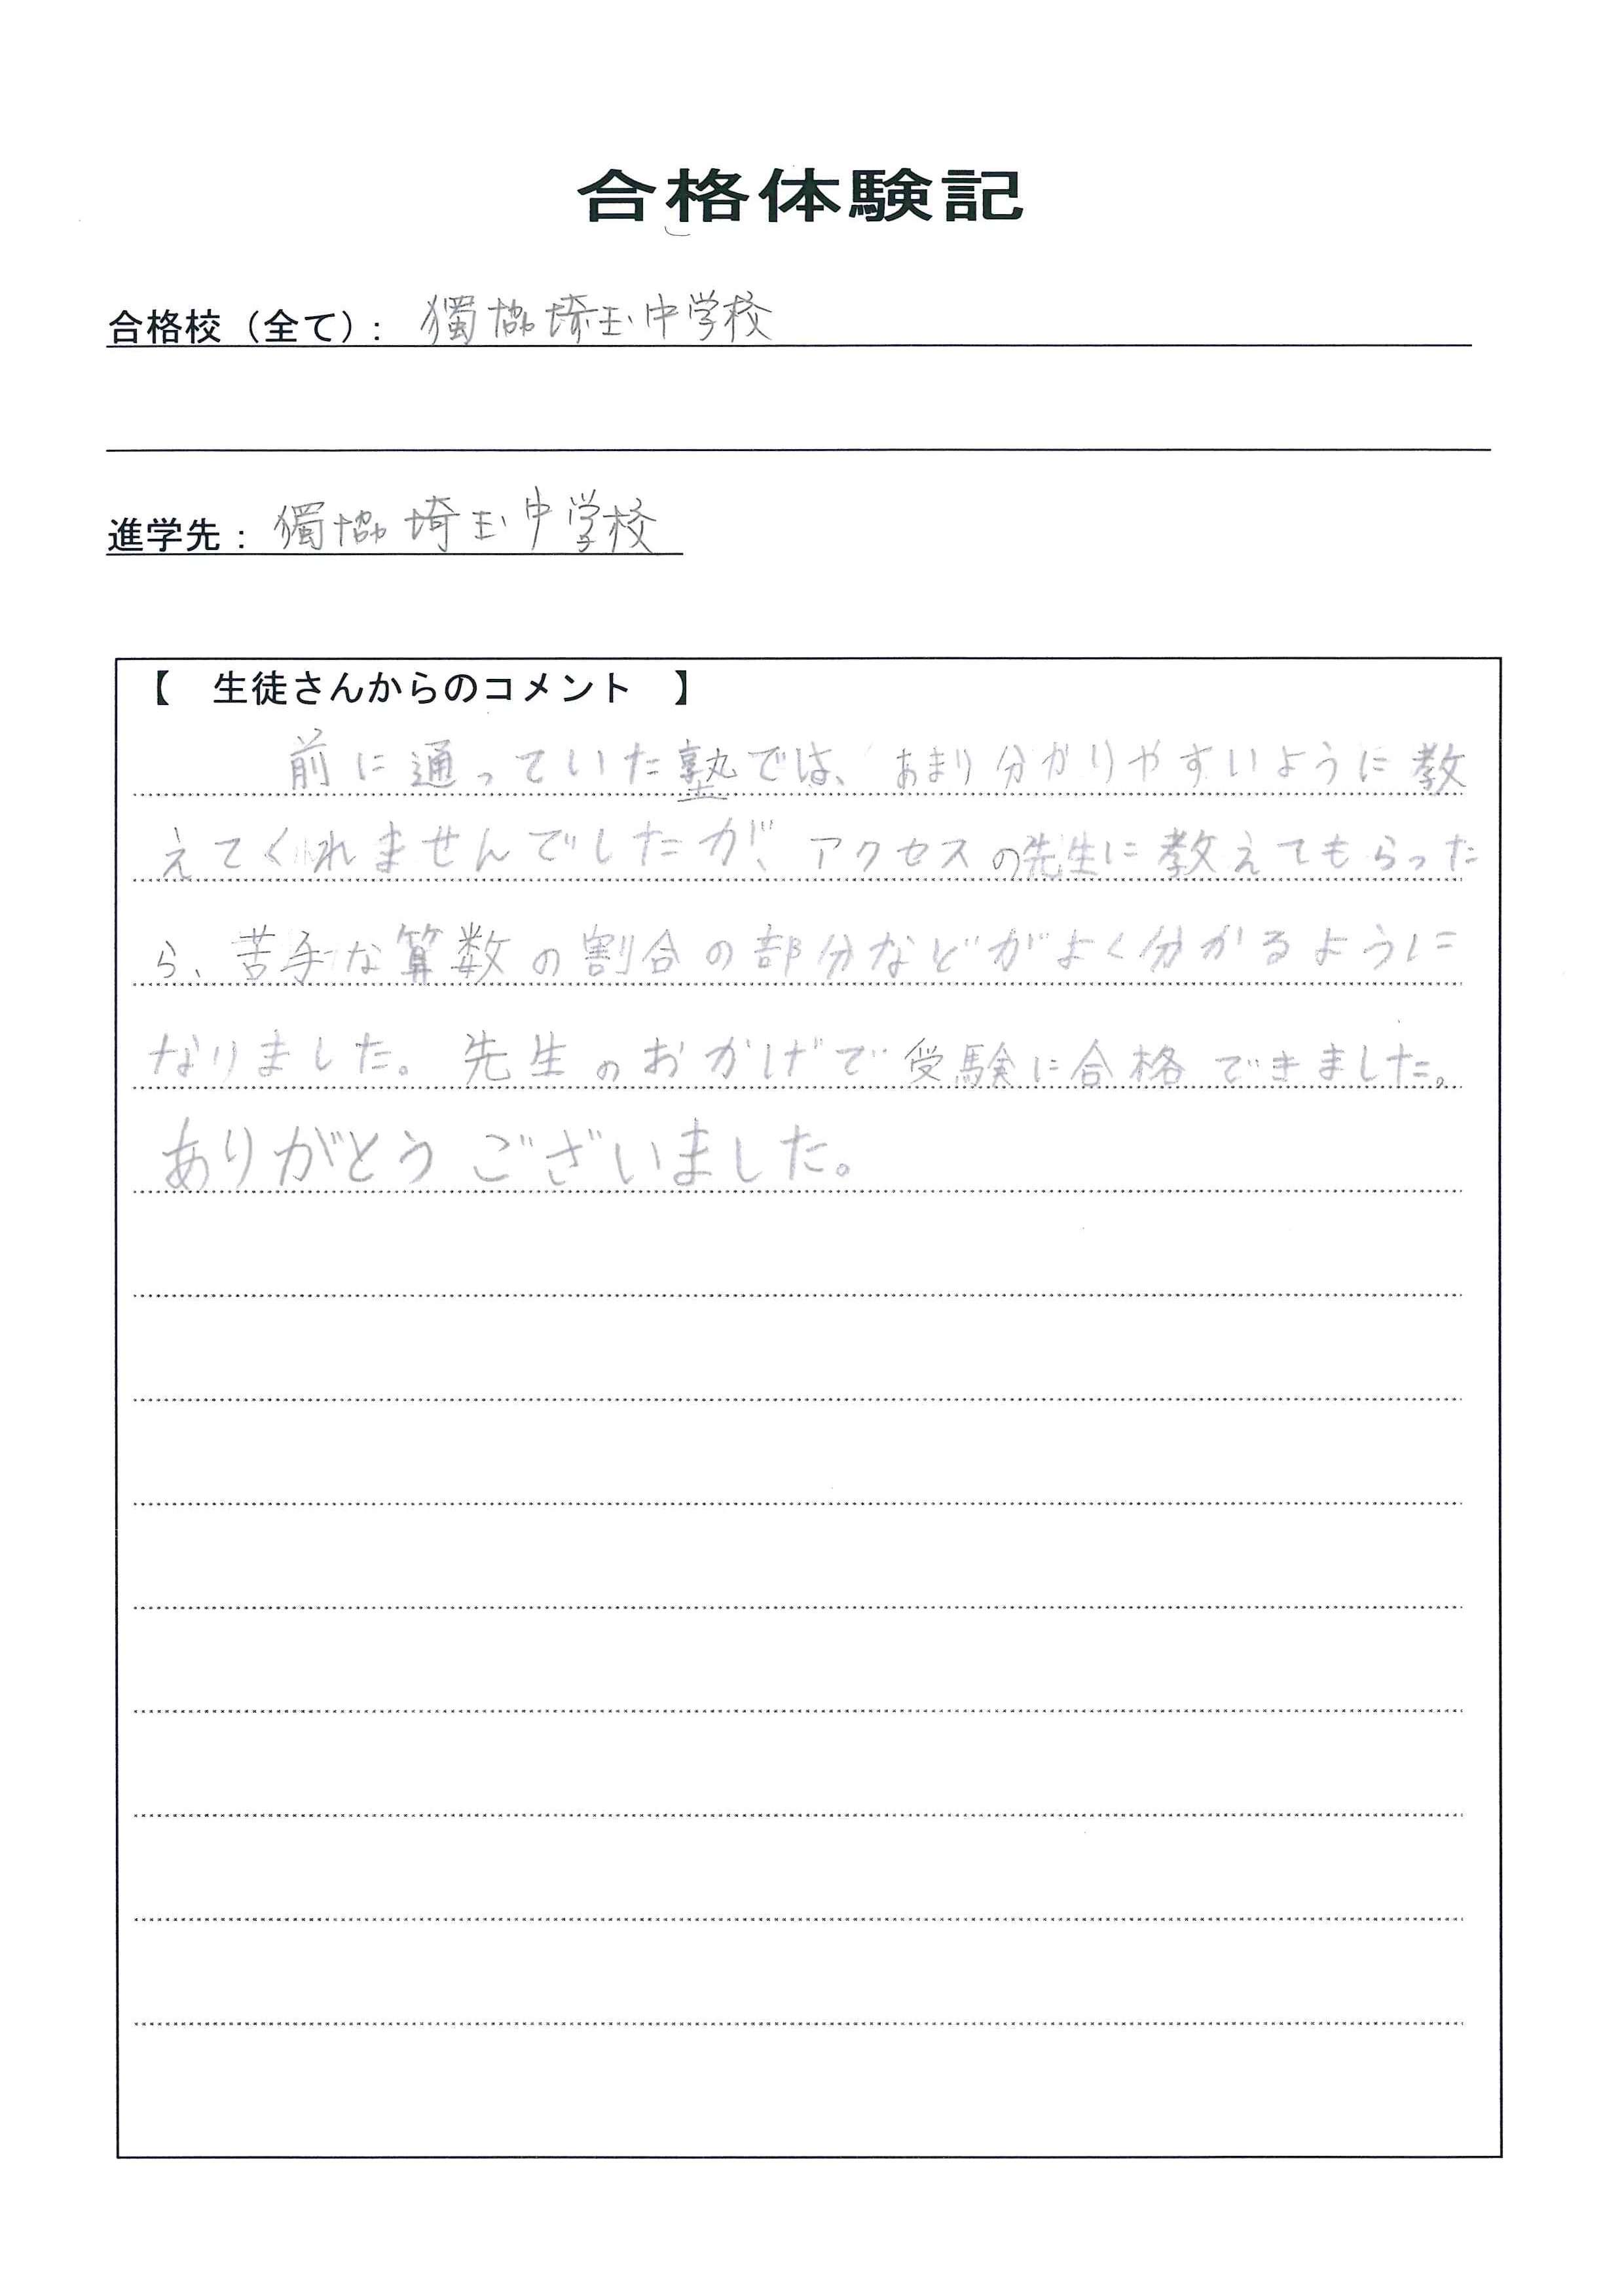 合格体験記
合格校（全て）: 獨協埼玉中学校
進学先: 獨協埼玉中学校
【 生徒さんからのコメント 】
前に通っていた塾では、あまり分かりやすいように教
えてくれませんでしたが、アクセスの先生に教えてもらった
ら、苦手な算数の割合の部分などがよく分かるように
なりました。先生のおかげで受験に合格できました。
ありがとうございました。